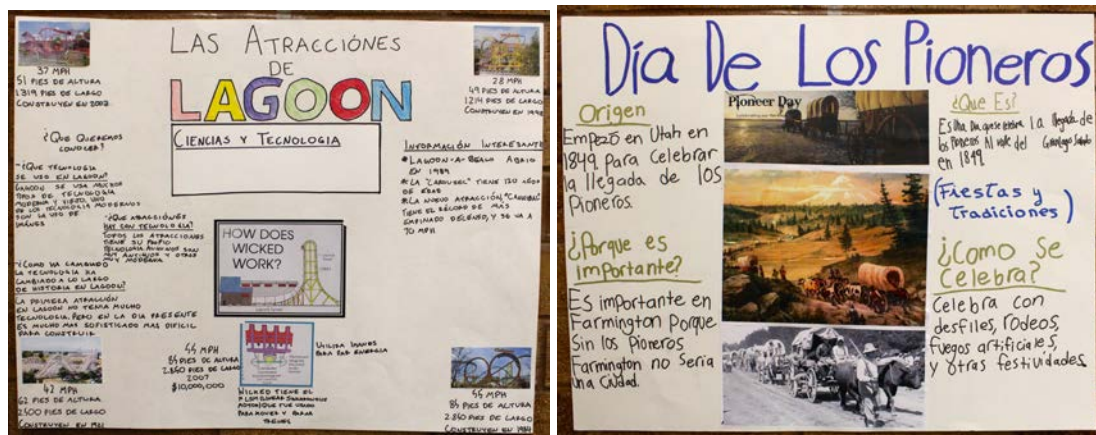 LAS ATRACCIÓNES
DE
LAGOON
37 MPH
51 PIES DE ALTURA
1319 PIES DE LARGO
CONSTRUYEN EN 2002
28 MPH
49 PIES DE ALTURA
1214 PIES DE LARGO
CIENCIAS Y TECNOLOGIA
¿QUE QUEREMOS
CONOCER?
-¿QUE TECNOLOGIA
SE USO EN LAGOON?
LAGOON SE USA MUCHOS
TIPOS DE TECNOLOGIA
MODERNA Y VIEJO, UNO
DE LOS TECNOLOGIA MODERNOS
SON LA USO DE
IMÁNES
-¿QUE ATRACCIÓNES
HAY CON TECNOLOGIA?
TODOS LOS ATRACCIONES
TIENE SU PROPIO
MUY ANTIGUOS Y OTROS
MUY MODERNA
-¿COMO HA CAMBIADO
LA TECNOLOGIA HA
CAMBIADO A LO LARGO
DE HISTORIA EN LAGOON?
LA PRIMERA ATRACCIÓN
EN LAGOON NO TENIA MUCHO
TECNOLOGIA. PERO EN LA DIA PRESENTE
ES MUCHO MAS SOFISTICADO MAS DIFICIL
PARA CONSTRUIR
INFORMACIÓN INTERESANTE
*LAGOON-A-BEACH ABRIO
EN 1989
*LA "CAROUSEL" TIENE 120 AÑOS
DE EDAD
*LA NUEVO ATRACCIÓN, "CANNIBAL"
TIENE EL RÉCORD DE MÁS
EMPINADO DECENSO, Y SE VA A
70 MPH
HOW DOES
WICKED
WORK?
UTILIZA IMANES
PARA DAR ENERGIA
55 MPH
2,840 PIES DE LARGO
2007
$10,000,000
WICKED TIENE EL
PARA MOVER Y PARAR
TRENES
42 MPH
62 PIES DE ALTURA
2,500 PIES DE LARGO
CONSTRUYEN EN 1921
55 MPH
85 PIES DE ALTURA
2,850 PIES DE LARGO
Día De Los Pioneros
Origen
Empezó en Utah en
1849 para Celebrar
la llegada de los
Pioneros.
¿Porque es
importante?
Es importante en
Farmington Porque
Sin los Pioneros
Farmington no Seria
una Ciudad.
Pioneer Day
¿Que Es?
Es Una Dia que se celebra la llegada de
los Pioneros Al valle del Gran Lago Salado
en 1849
(Fiestas y
Tradiciones)
¿Como Se
Celebra?
Celebra con
desfiles, rodeos,
fuegos artificiales,
y otras festividades.